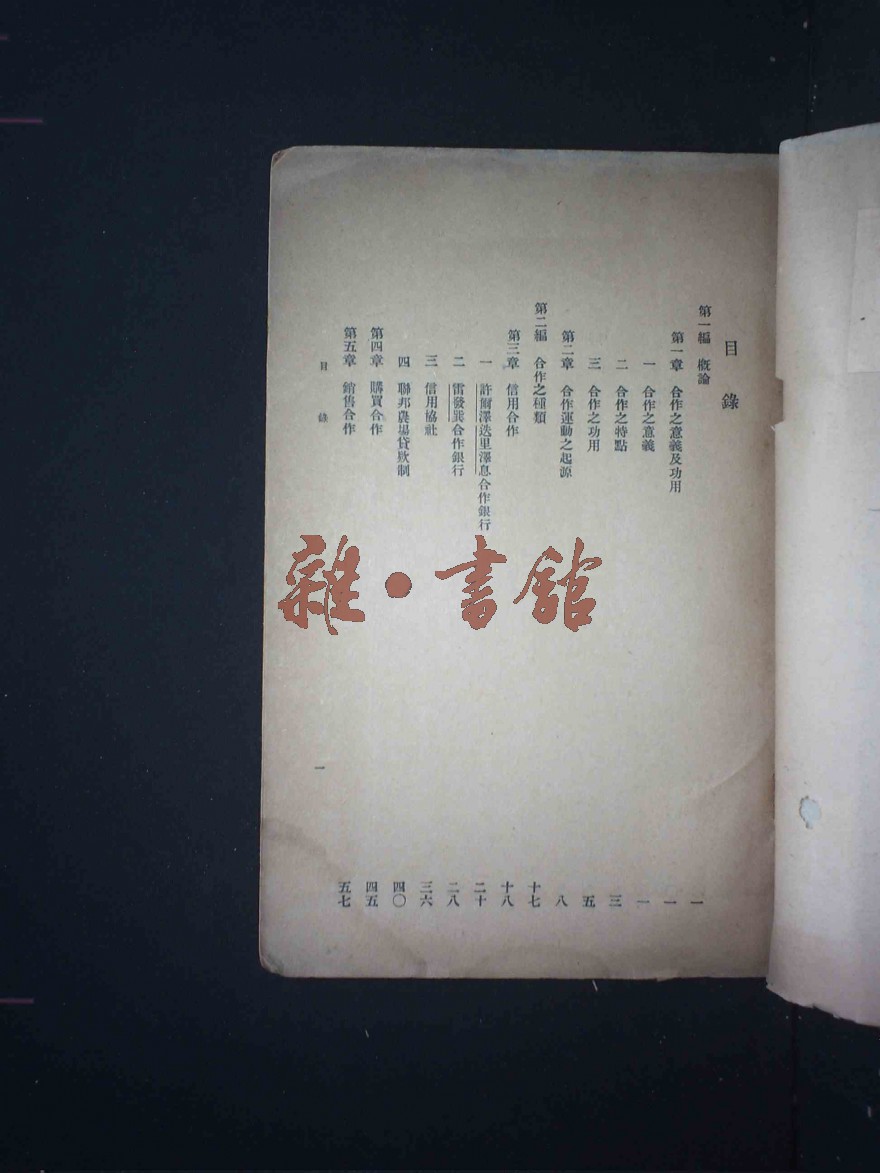 目錄
第一編 概論 一
第一章 合作之意義及功用 一
一 合作之意義 一
二 合作之特點 三
三 合作之功用 五
第二章 合作運動之起源 八
第二編 合作之種類 十七
第三章 信用合作 十八
一 許爾澤迭里澤息合作銀行 二十
二 雷發巽合作銀行 二八
三 信用協社 三六
四 聯邦農場貸款制 四〇
第四章 購買合作 四五
第五章 銷售合作 五七
目錄 一
雜·書館